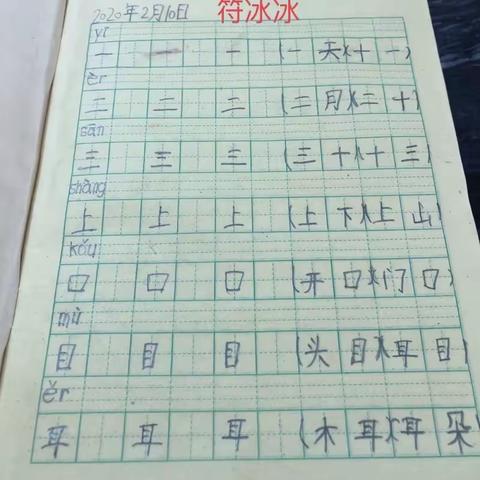 2020年2月10日 符冰冰
yī
一 一 一 (一 天)(十 一)
èr
二 二 二 (二 月)(二 十)
sān
三 三 三 (三 十)(十 三)
shàng
上 上 上 (上 下)(上 山)
kǒu
口 口 口 (开 口)(门 口)
mù
目 目 目 (头 目)(耳 目)
ěr
耳 耳 耳 (木 耳)(耳 朵)